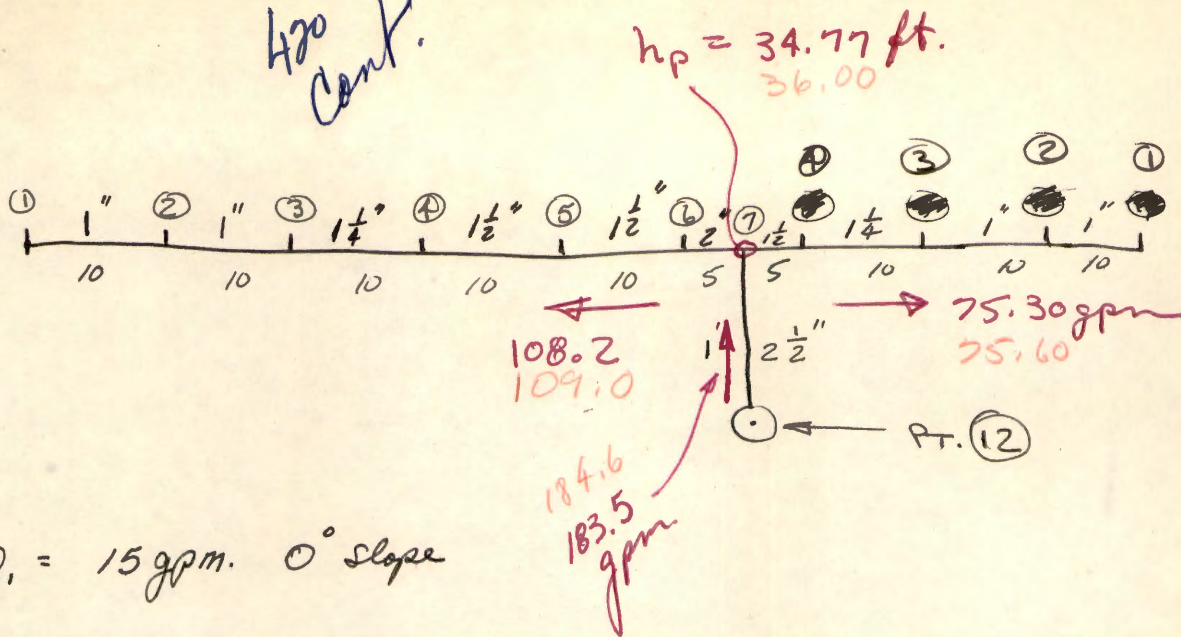 420
Cont.
hp = 34.77 ft.
36.00
④ ③ ② ①
① 1" ② 1" ③ 1 1/4" ④ 1 1/2" ⑤ 1 1/2" ⑥ 2" ⑦ 1 1/2 1 1/4 1" 1"
10 10 10 10 10 5 5 10 10 10
108.2
109.0
1' 2 1/2"
75.30 gpm
75.60
PT. ⑫
184.6
183.5
gpm
= 15 gpm. 0° slope